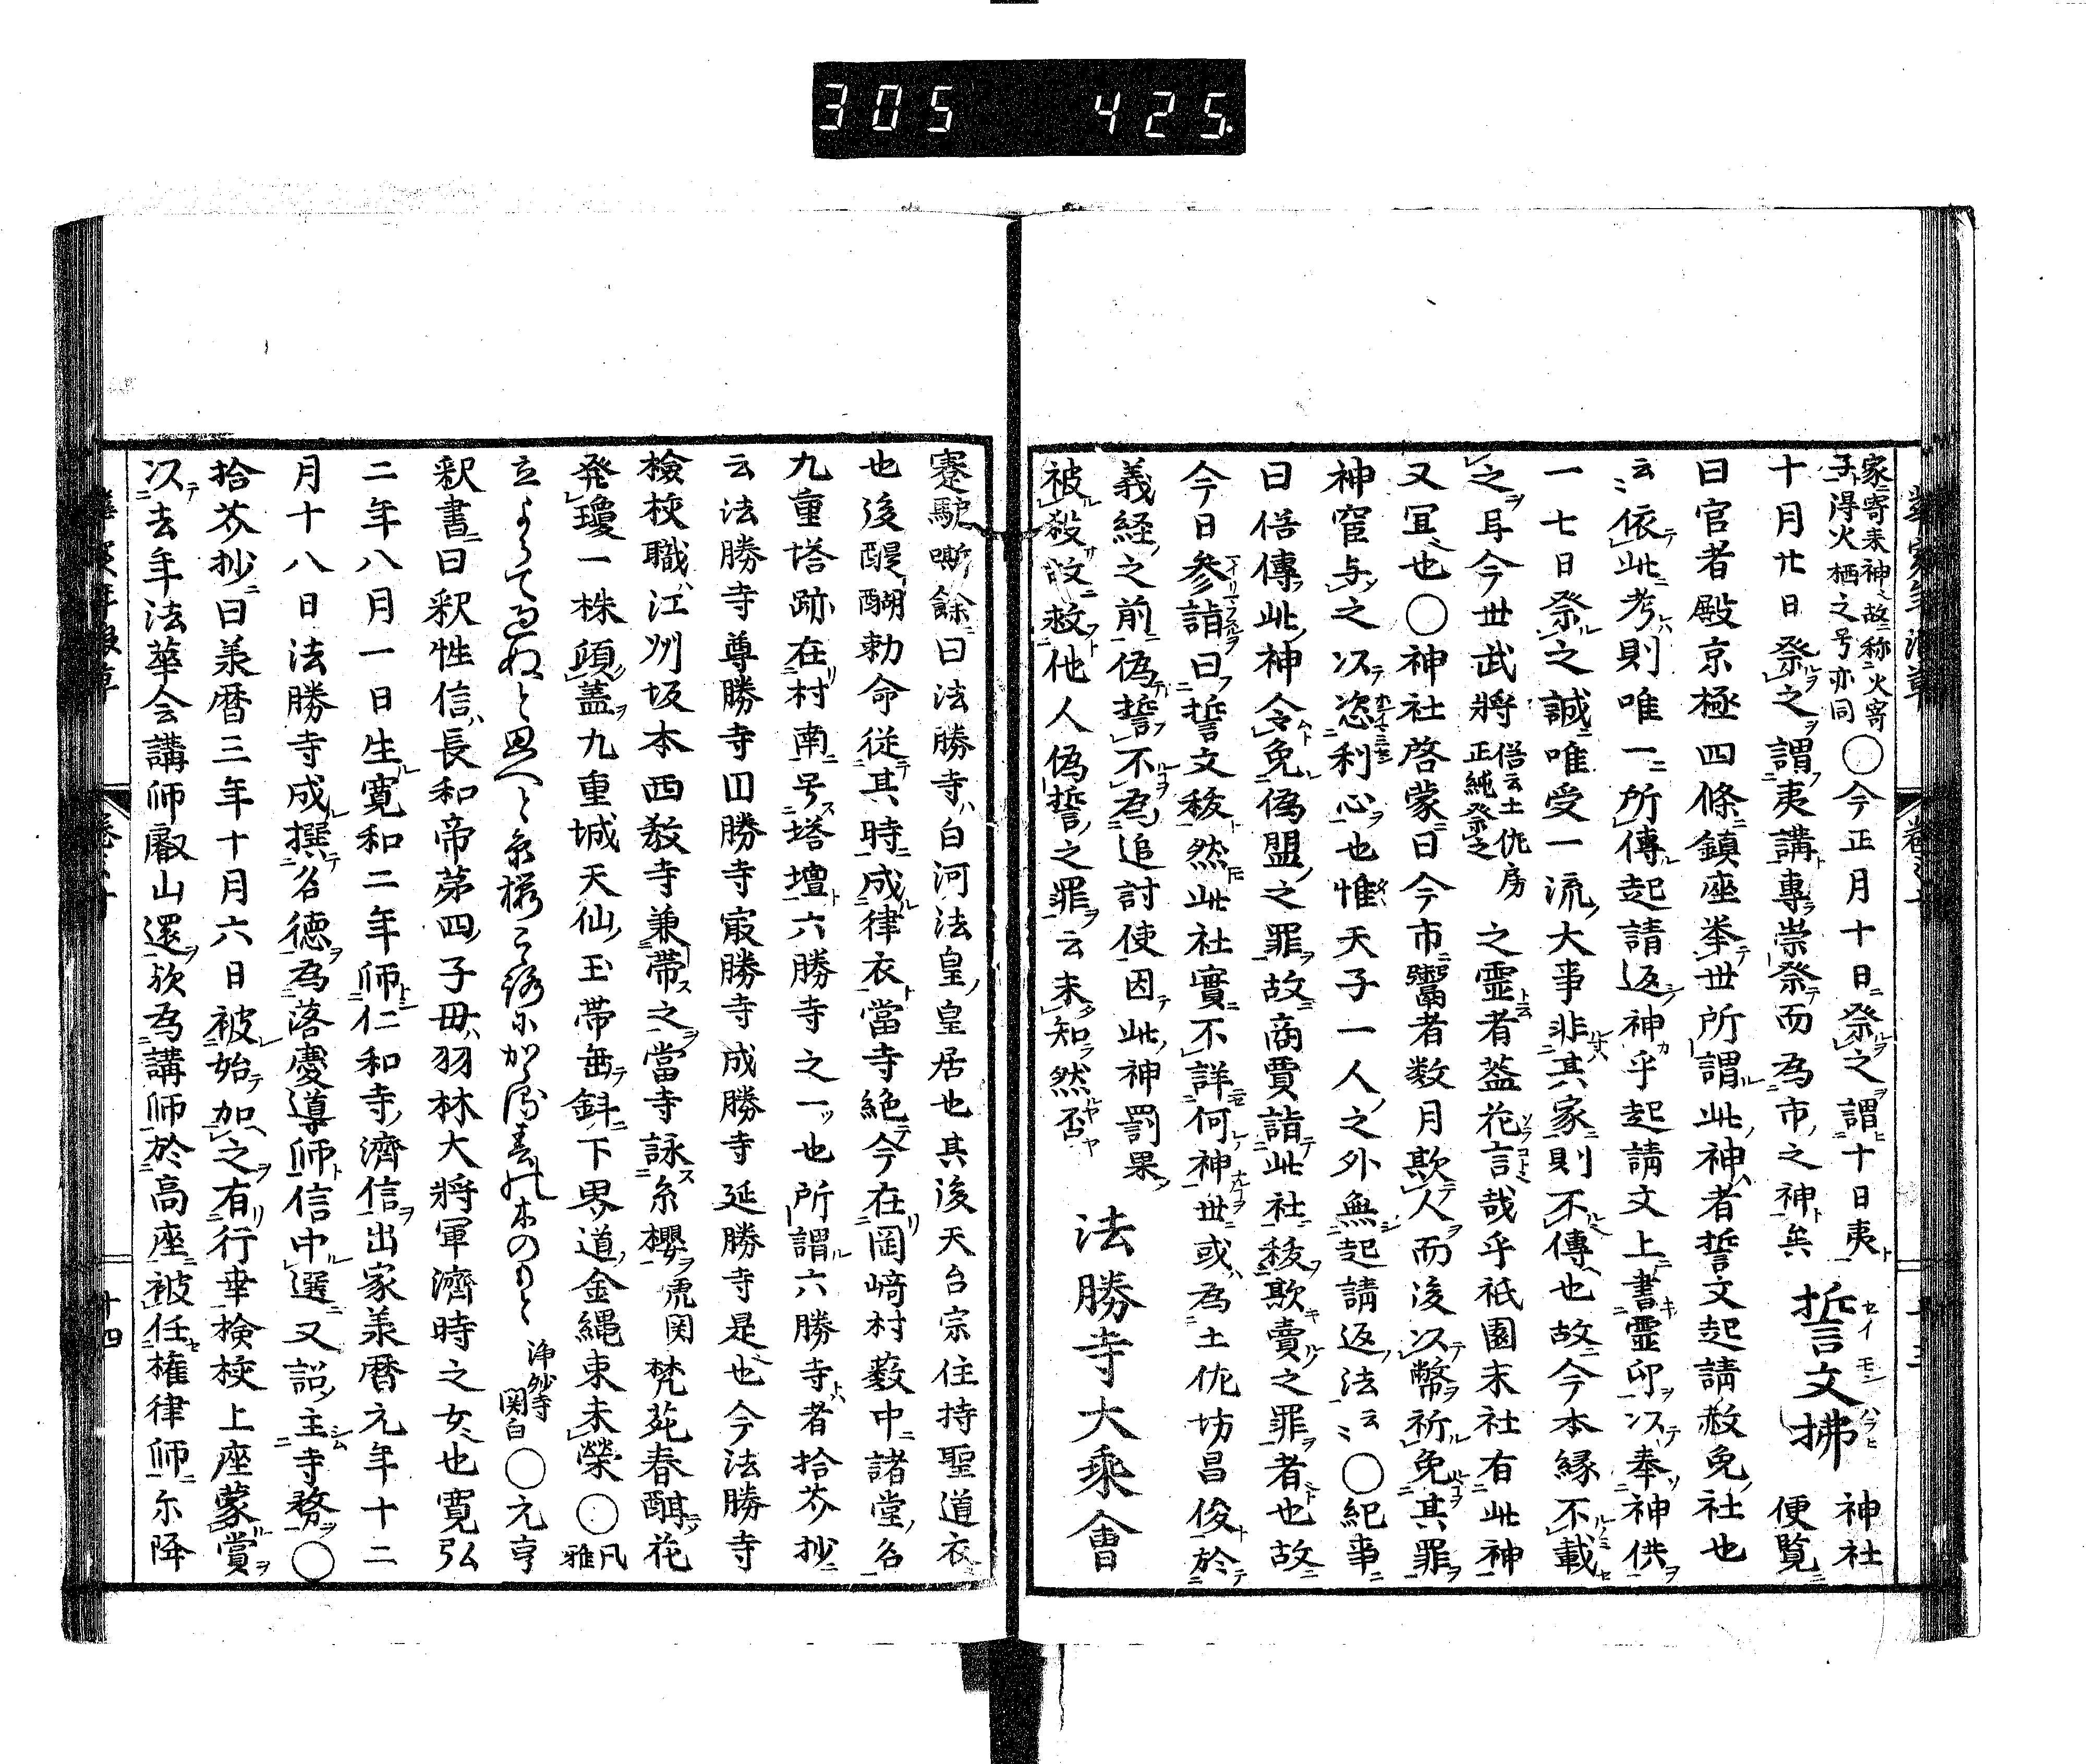 305 425
家寄来神故称火寄
子得火栖之号亦同
○今正月十日祭之謂十日夷
十月廿日祭之謂夷講專崇祭而為市之神矣 誓文拂 神社
便覧
曰官者殿京極四條鎮座挙世所謂此神者誓文起請赦免社也
云〻依此考則唯一所傳起請返神乎起請文上書霊印以奉神供
一七日祭之誠唯受一流大事非其家則不傳也故今本縁不載
之耳今世武将俗云土佐房
正純祭之之霊者蓋花言哉乎祇園末社有此神
又冝也○神社啓蒙曰今市鬻者数月欺人而後以幣祈免其罪
神官与之以恣利心也惟天子一人之外無起請返法云〻○紀事
曰俗傳此神令免偽盟之罪故商賈詣此社祓欺賣之罪者也故
今日參詣曰誓文祓然此社實不詳何神世或為土佐坊昌俊於
義経之前偽誓不為追討使因此神罰果
被殺故赦他人偽誓之罪云未知然否 法勝寺大乘會
蹇驢嘶餘曰法勝寺白河法皇皇居也其後天台宗住持聖道衣
也後醍醐勅命従其時成律衣當寺絶今在岡﨑村薮中諸堂名
九重塔跡在村南号塔壇六勝寺之一也所謂六勝寺者拾芥抄
云法勝寺尊勝寺囬勝寺㝡勝寺成勝寺延勝寺是也今法勝寺
檢校職江州坂本西教寺兼帶之當寺詠糸櫻虎関梵苑春酣花
発瓊一株頭蓋九重城天仙玉帯垂斜下界道金縄束未榮○凡
雅
立よらて過ぬと思へと糸桜こゝろにかゝる春の木のもと 浄妙寺
関白○元亨
釈書曰釈性信長和帝苐四子毋羽林大將軍濟時之女也寛弘
二年八月一日生寛和二年師仁和寺濟信出家羕暦元年十二
月十八日法勝寺成撰名徳為落慶導師信中選又詔主寺務○
拾芥抄曰羕暦三年十月六日被始加之有行幸検校上座蒙賞
以去年法華会講師叡山還欤為講師於高座被任権律師尓降